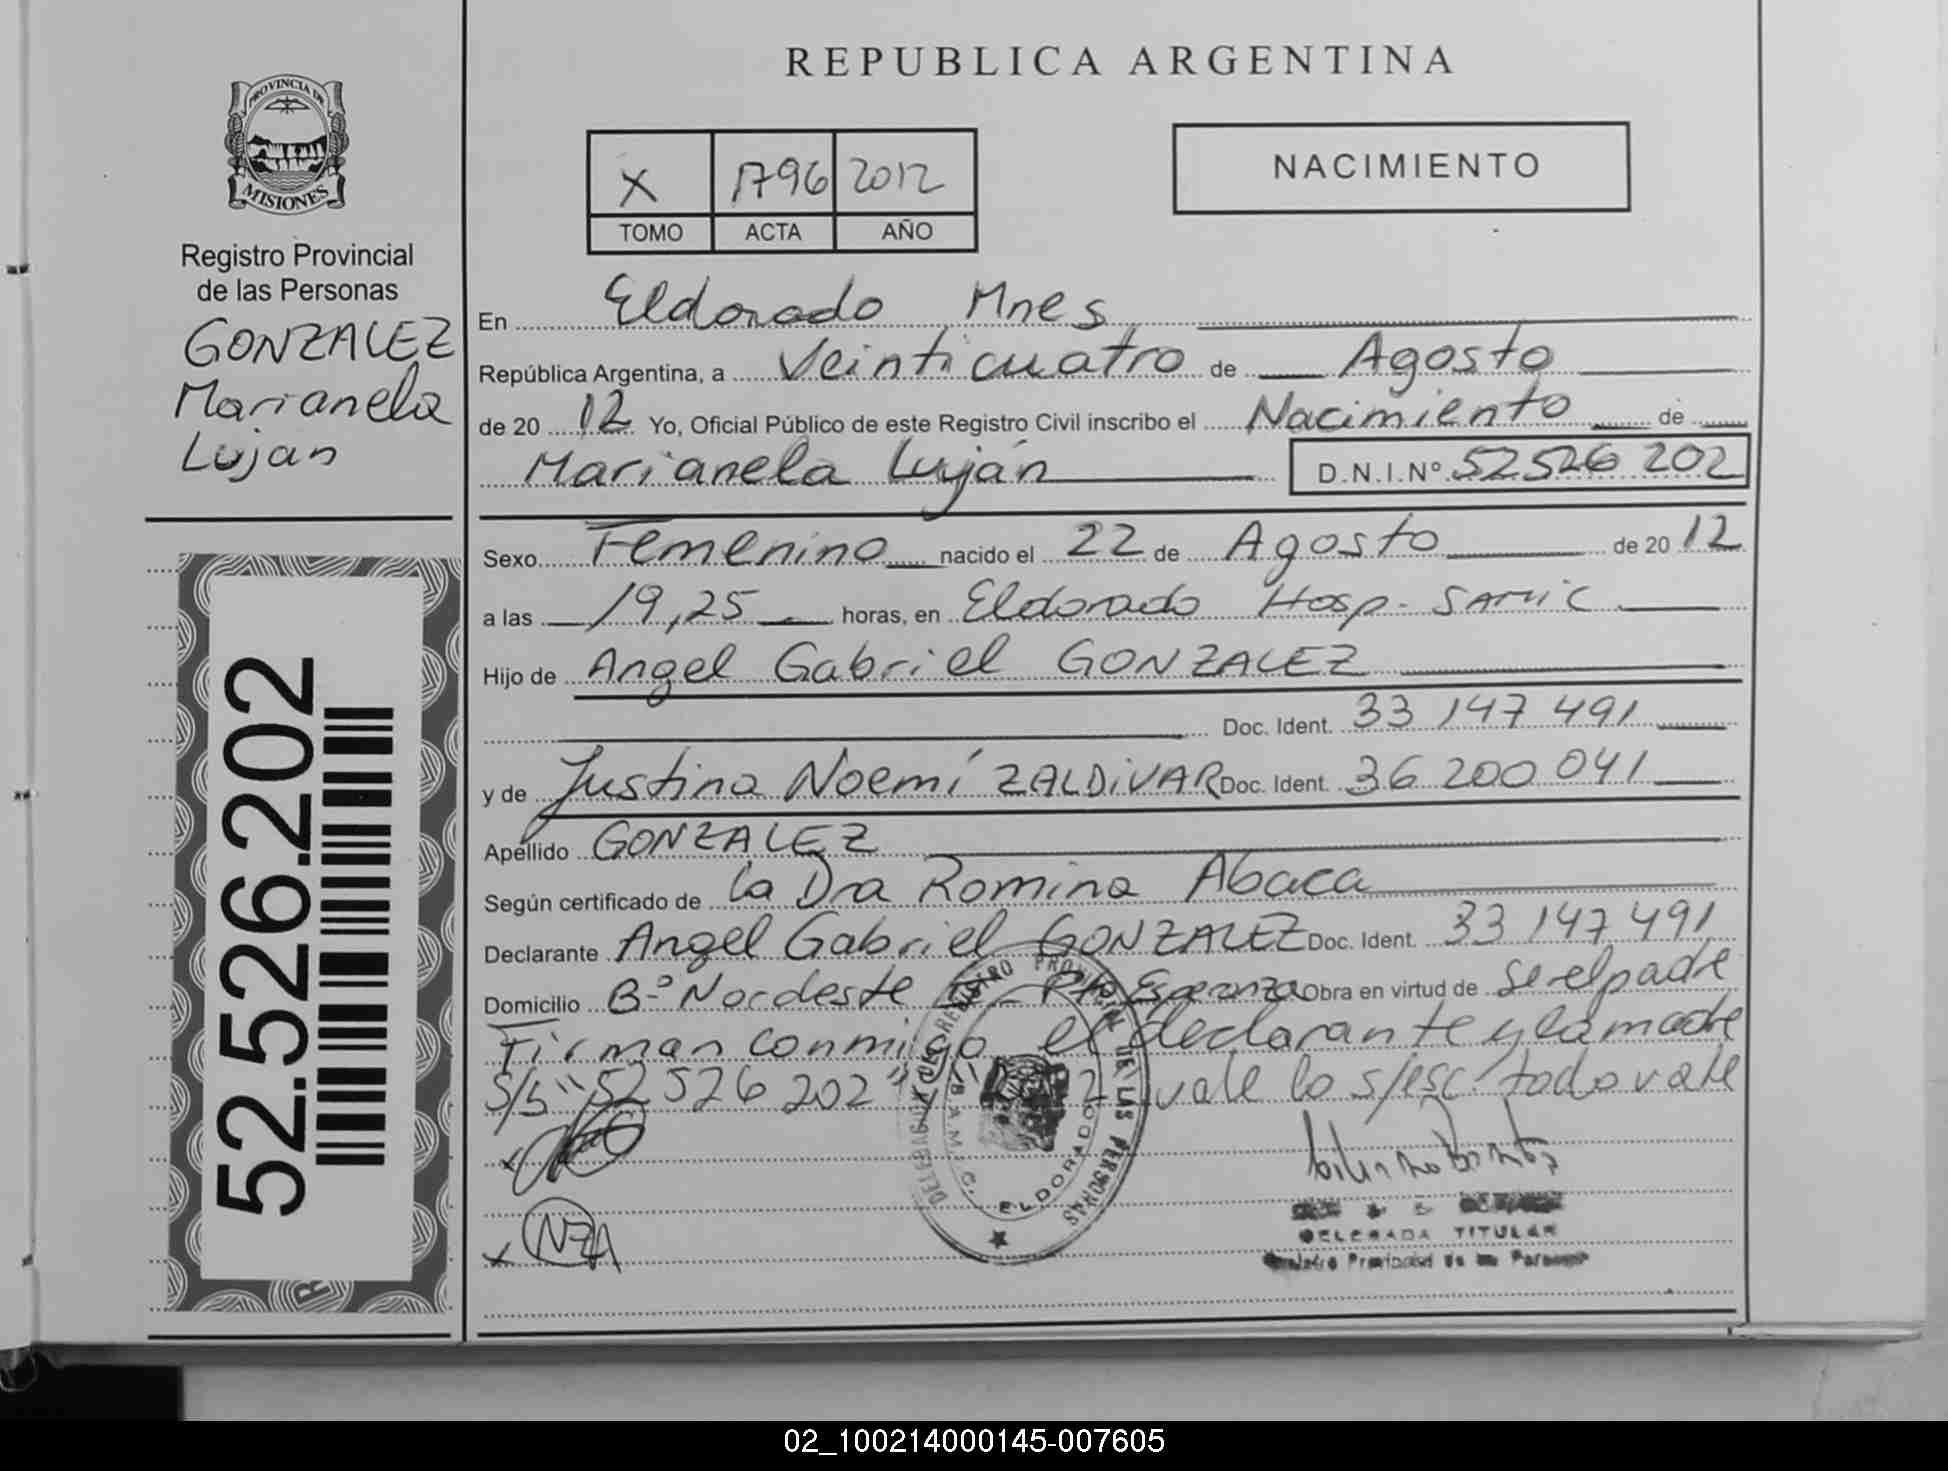 PROVINCIA DE
MISIONES
Registro Provincial
de las Personas
GONZALEZ
Marianela
Lujan
52.526.202
REPUBLICA ARGENTINA
X 1796 2012
TOMO ACTA AÑO
NACIMIENTO
En Eldorado Mnes
República Argentina, a Veinticuatro de Agosto
de 20 12 Yo, Oficial Público de este Registro Civil inscribo el Nacimiento de
Marianela Luján D.N.I.Nº 52526 202
Sexo Femenino nacido el 22 de Agosto de 20 12
a las 19,25 horas, en Eldorado Hosp. SAMIC
Hijo de Angel Gabriel GONZALEZ
Doc. Ident. 33 147 491
y de Justina Noemí ZALDIVAR Doc. Ident. 36 200 041
Apellido GONZALEZ
Según certificado de la Dra Romina Abaca
Declarante Angel Gabriel GONZALEZ Doc. Ident. 33 147 491
Domicilio Bº Nordeste Pto Esperanza Obra en virtud de ser el padre
Firman conmigo el declarante y la madre
S/b "52 526 202" y vale lo s/esc todo vale
NZA
REGISTRO PROVINCIAL DE LAS PERSONAS
ELDORADO
DELEGADA TITULAR
Registro Provincial de las Personas
02_100214000145-007605